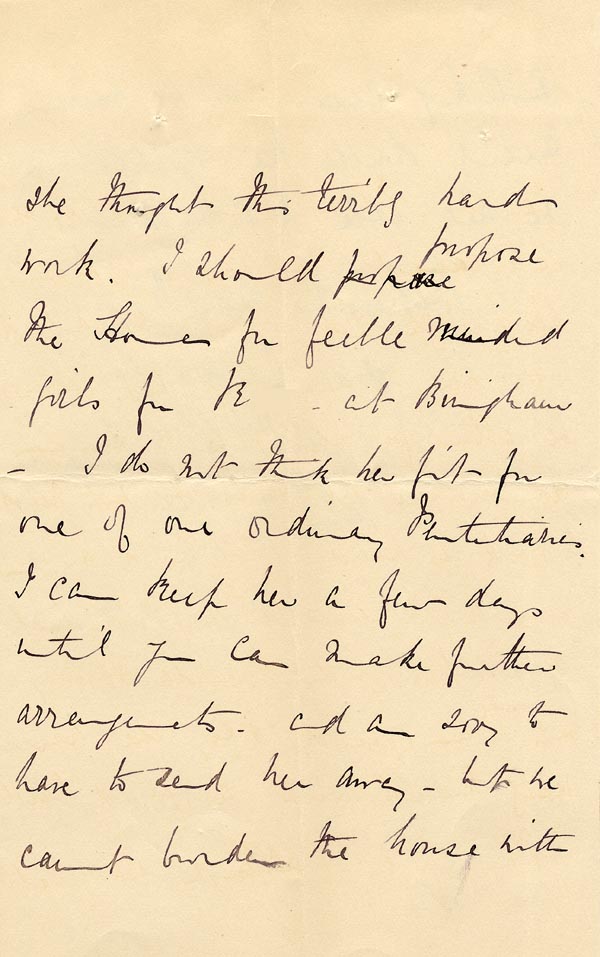 she thought this terribly hard
work. I should propose propose
the Homes for feeble minded
girls for K - at Birmingham
- I do not think her fit for
one of our ordinary Penitentiaries.
I can keep her a few days
until you can make further
arrangements. and am sorry to
have to send her away - but we
cannot burden the house with